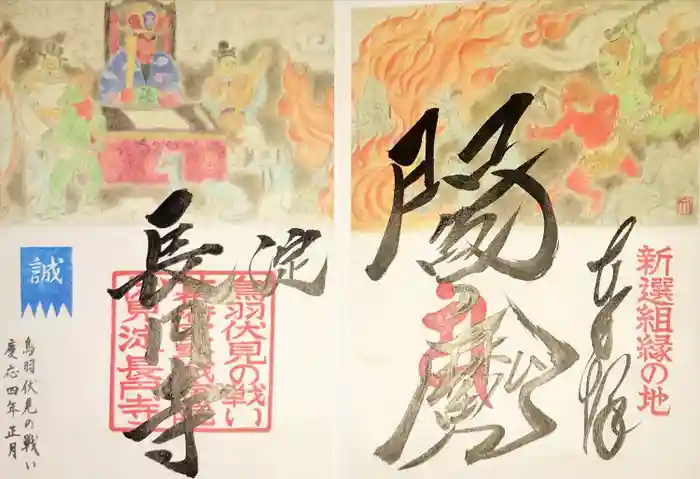 新選組縁の地
奉拝
閻魔
淀
長円寺
鳥羽伏見の戦い
伏見淀長円寺
誠
鳥羽伏見の戦い
慶応四年 正月